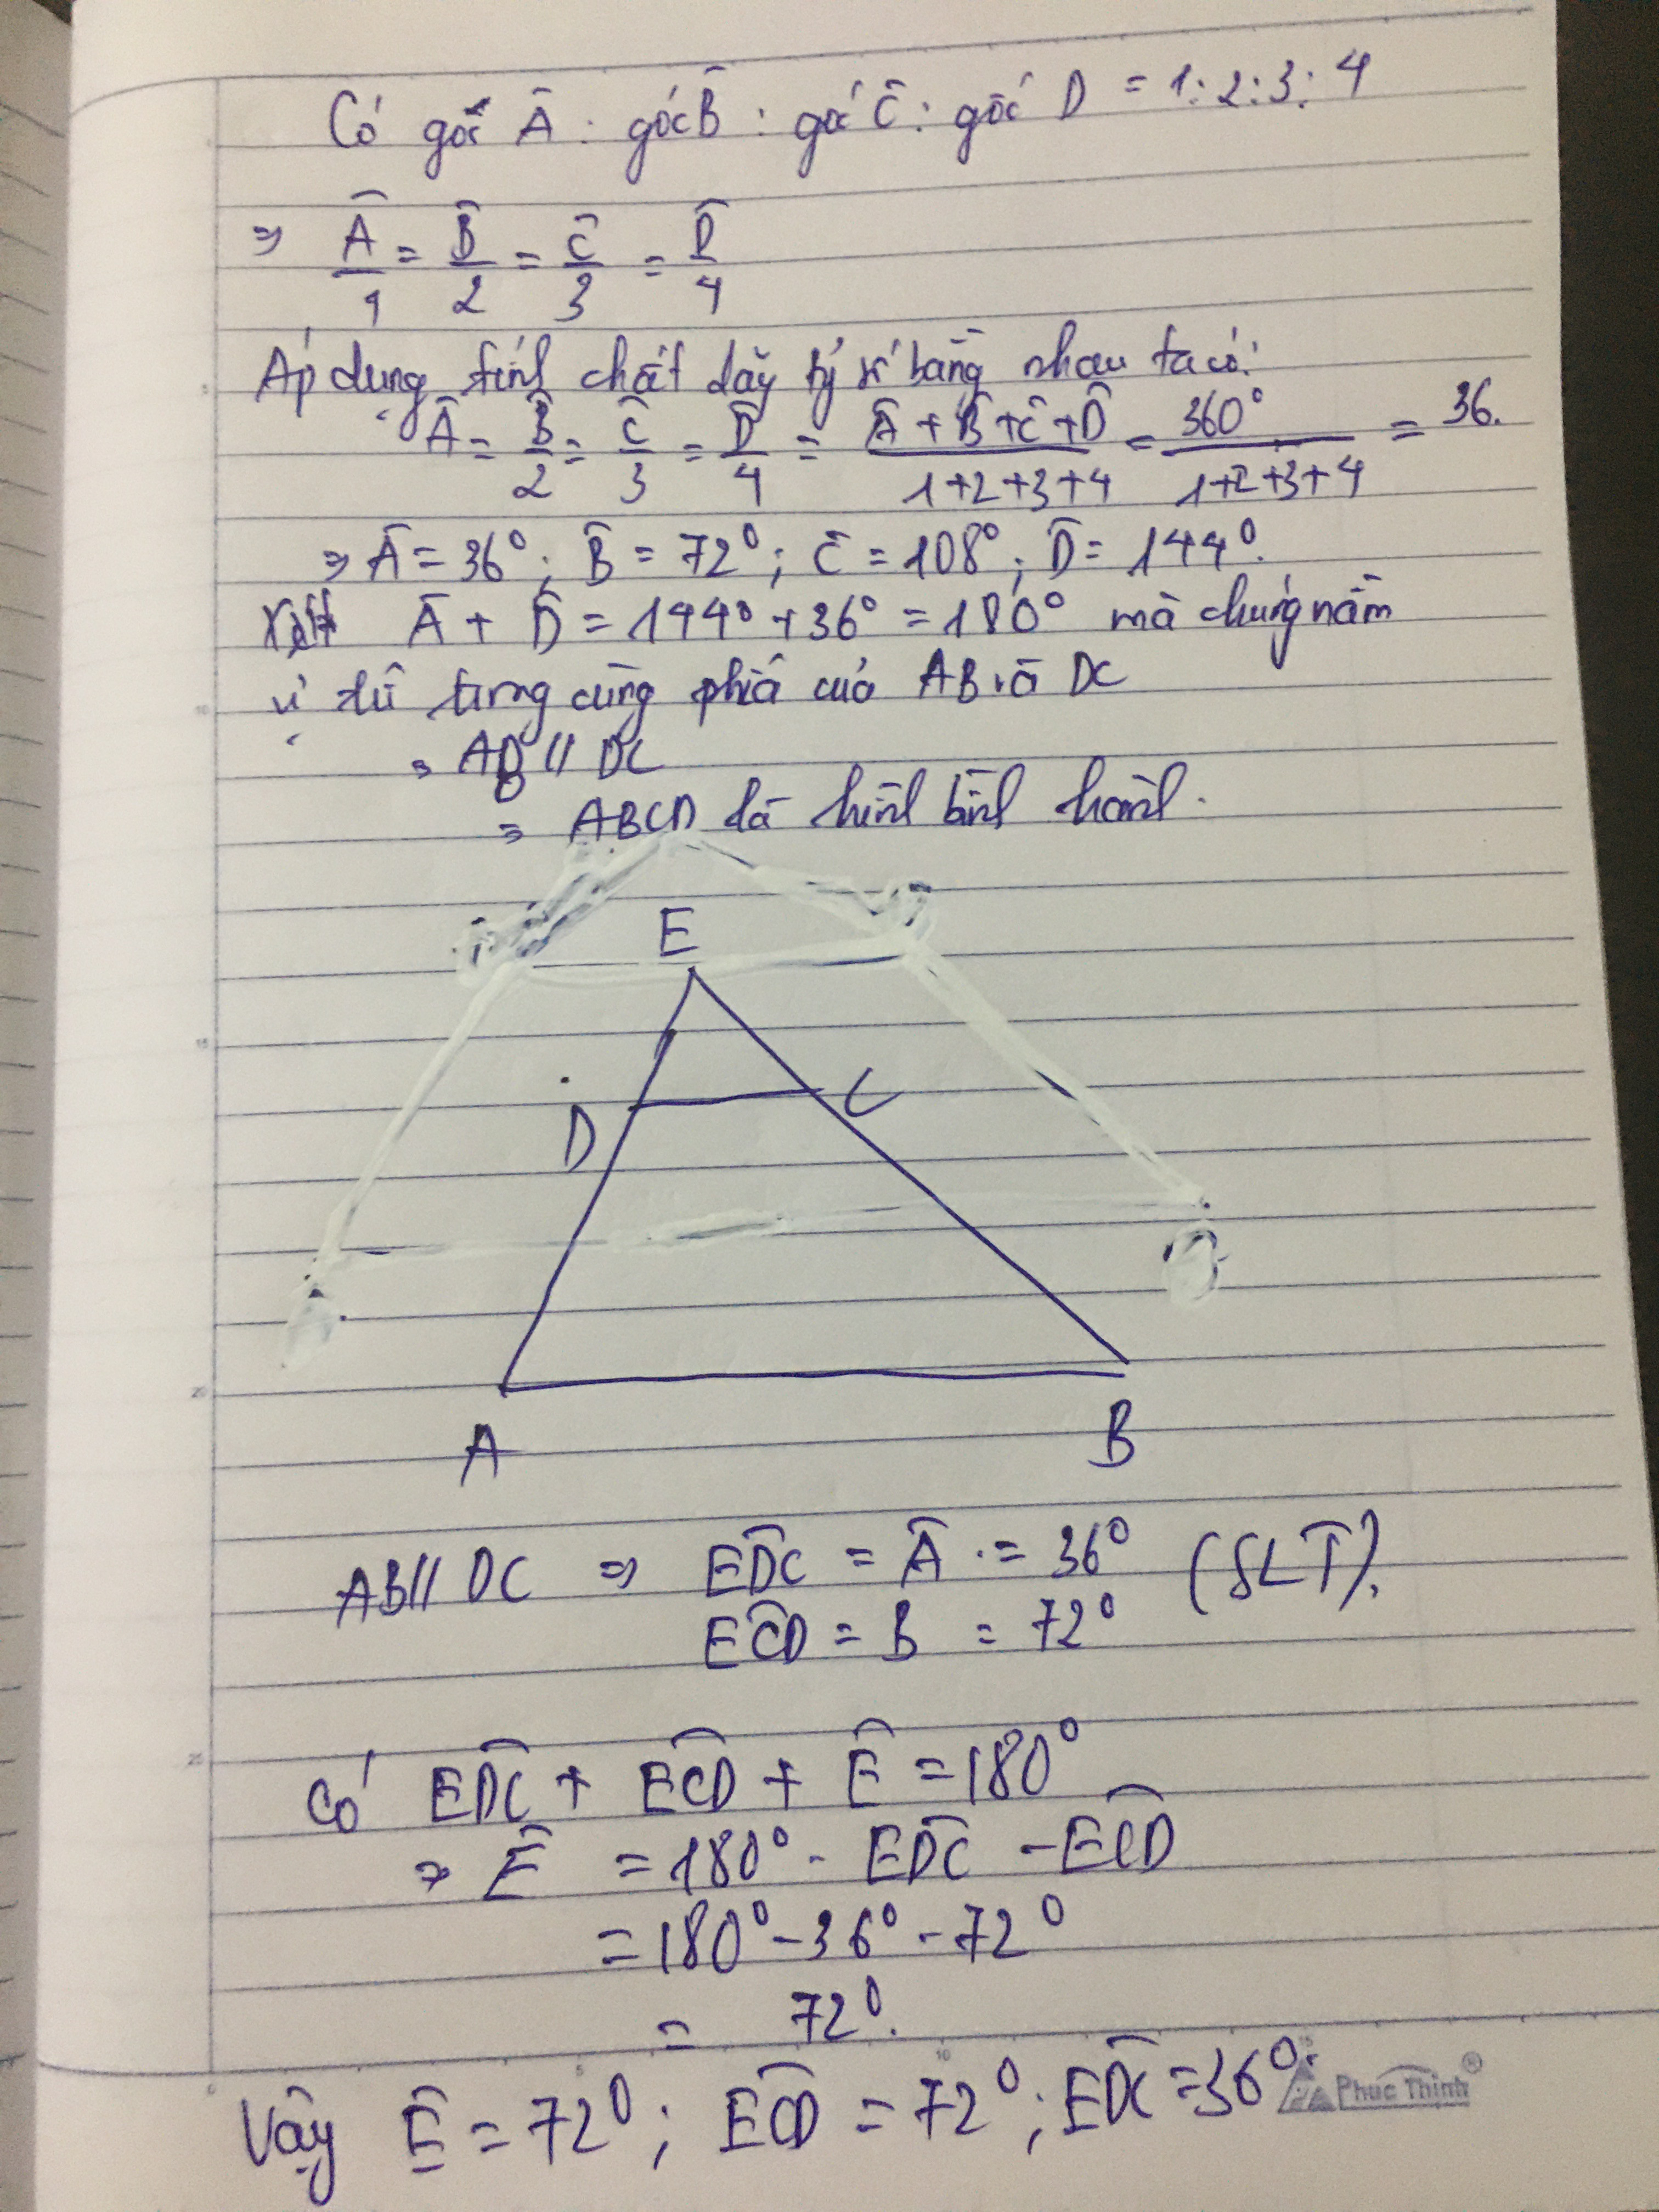 Có góc Â : góc B̂ : góc Ĉ : góc D = 1:2:3:4
⇒ Â/1 = B̂/2 = Ĉ/3 = D̂/4
Áp dụng tính chất dãy tỷ số bằng nhau ta có:
Â = B̂/2 = Ĉ/3 = D̂/4 = (Â + B̂ + Ĉ + D̂)/(1+2+3+4) = 360°/(1+2+3+4) = 36.
⇒ Â = 36°; B̂ = 72°; Ĉ = 108°; D̂ = 144°.
Â + D̂ = 144° + 36° = 180° mà chúng nằm
vị trí trong cùng phía của AB và DC
⇒ AB // DC
⇒ ABCD là hình bình hành.
E
D C
A B
AB // DC ⇒ EDC = Â = 36° (SLT).
ECD = B = 72°
Có EDC + ECD + Ê = 180°
⇒ Ê = 180° - EDC - ECD
= 180° - 36° - 72°
= 72°.
Vậy Ê = 72°; ECD = 72°; EDC = 36°.
Phúc Thịnh ®
5
10
15
20
25
0 5 10 15